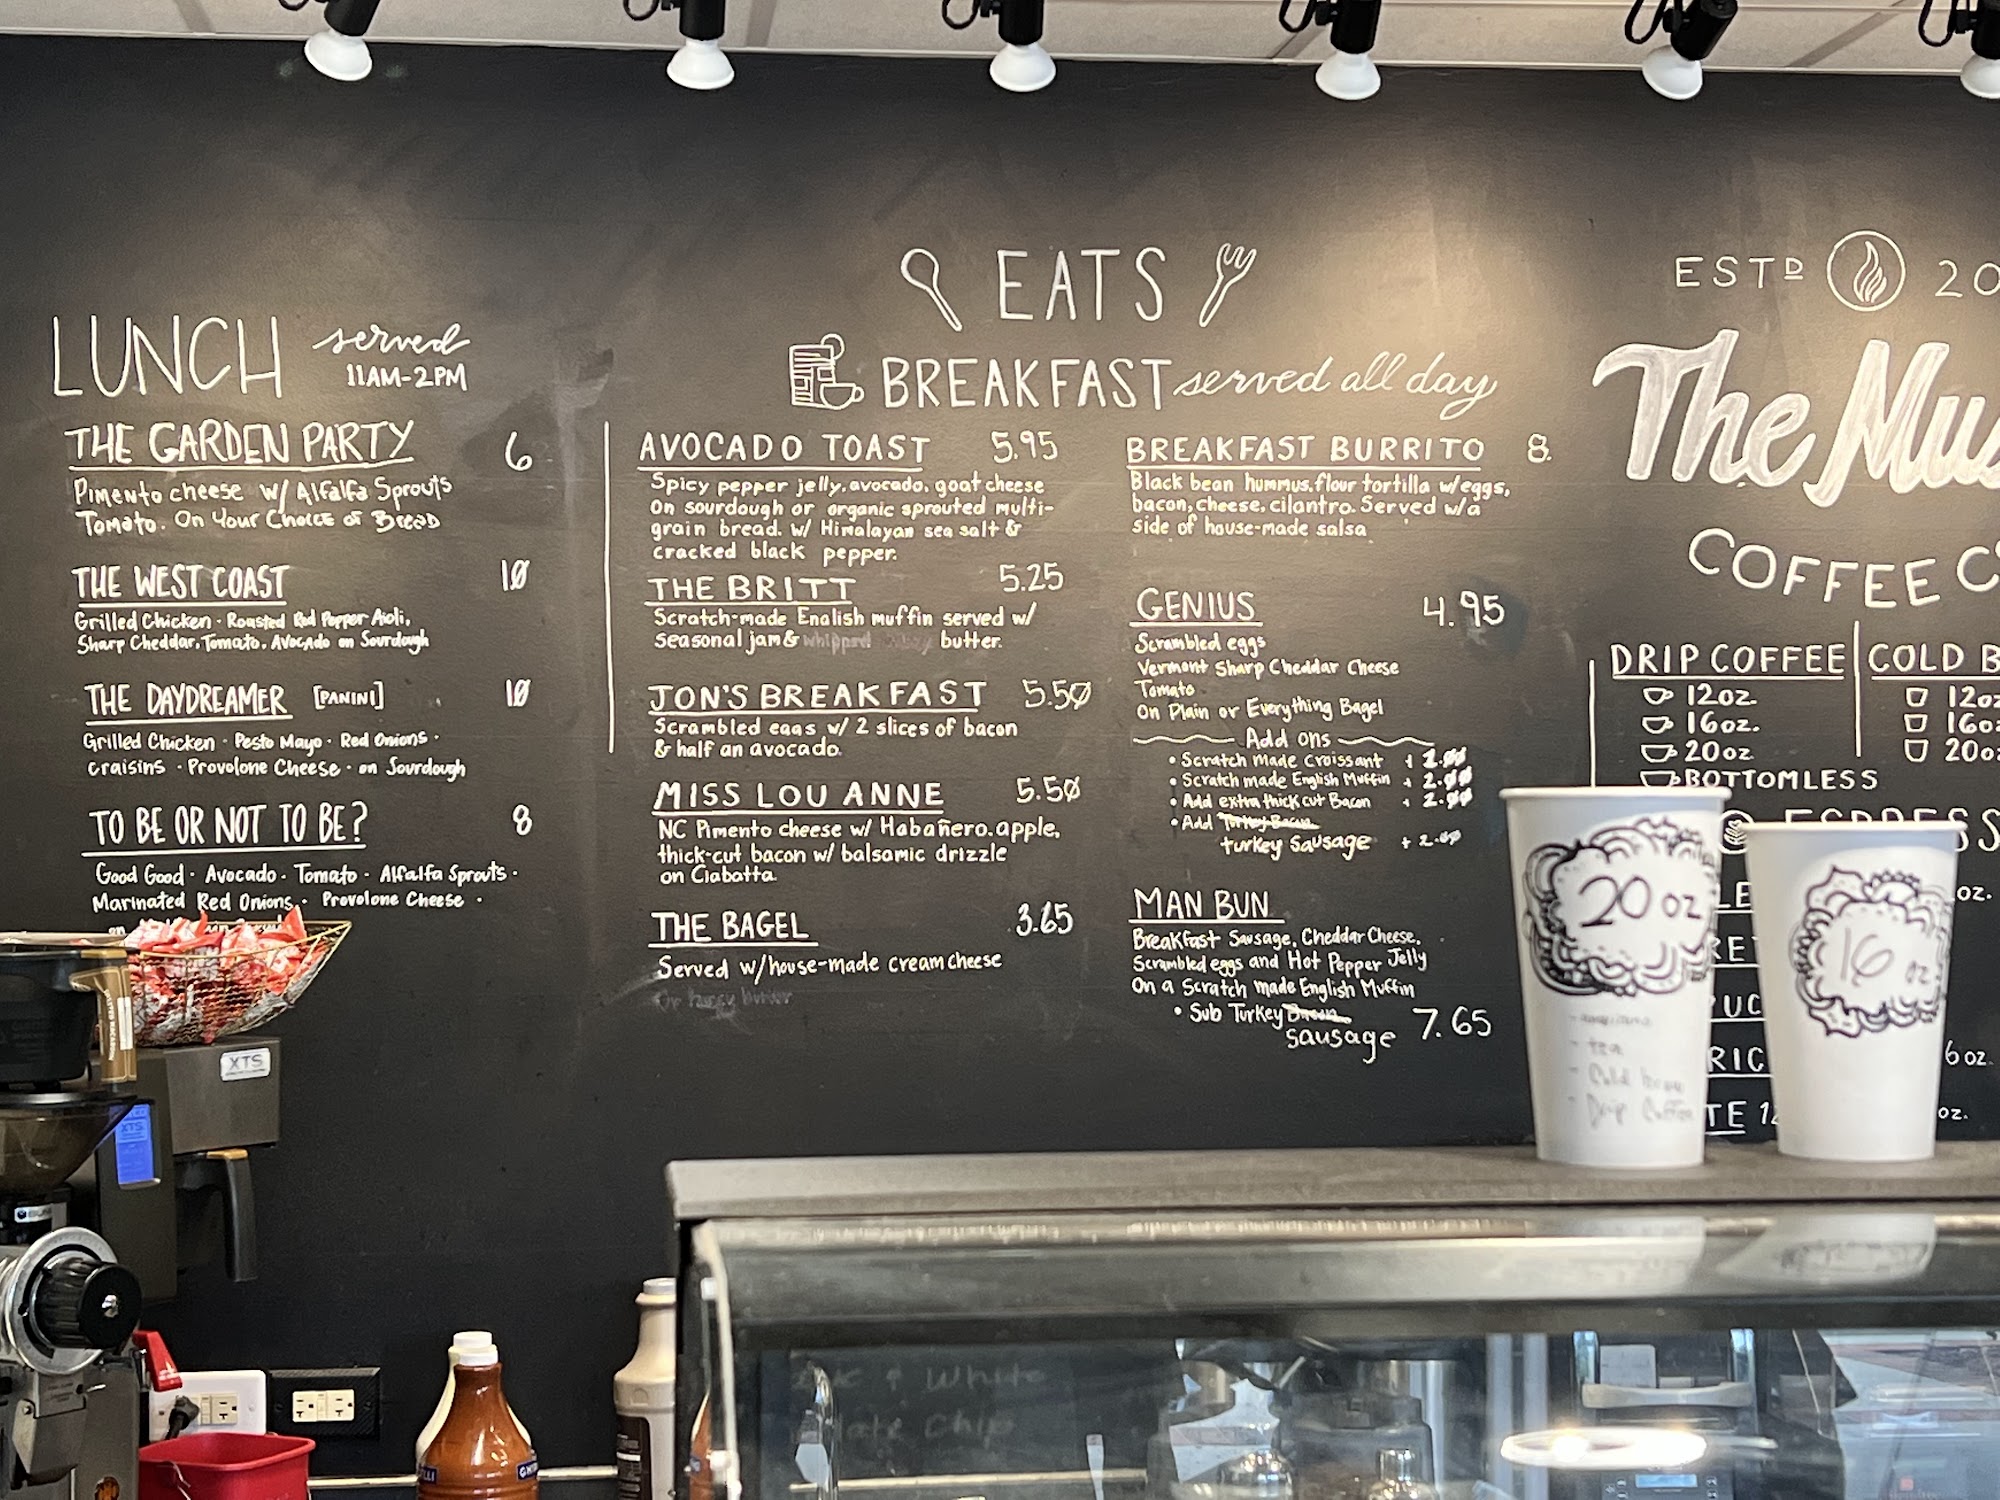 LUNCH served
11AM-2PM
THE GARDEN PARTY 6
Pimento cheese w/ Alfalfa Sprouts
Tomato. On Your Choice of Bread
THE WEST COAST 10
Grilled Chicken · Roasted Red Pepper Aioli,
Sharp Cheddar, Tomato, Avocado on Sourdough
THE DAYDREAMER [PANINI] 10
Grilled Chicken · Pesto Mayo · Red Onions ·
Craisins · Provolone Cheese · on Sourdough
TO BE OR NOT TO BE? 8
Good Good · Avocado · Tomato · Alfalfa Sprouts ·
Marinated Red Onions · Provolone Cheese ·
on
EATS
BREAKFAST served all day
AVOCADO TOAST 5.95
Spicy pepper jelly, avocado, goat cheese
on sourdough or organic sprouted multi-
grain bread. w/ Himalayan sea salt &
cracked black pepper.
THE BRITT 5.25
Scratch-made English muffin served w/
seasonal jam & whipped butter.
JON'S BREAKFAST 5.50
Scrambled eggs w/ 2 slices of bacon
& half an avocado.
MISS LOU ANNE 5.50
NC Pimento cheese w/ Habañero.apple,
thick-cut bacon w/ balsamic drizzle
on Ciabatta.
THE BAGEL 3.65
Served w/house-made cream cheese
BREAKFAST BURRITO 8.
Black bean hummus, flour tortilla w/eggs,
bacon, cheese, cilantro. Served w/a
side of house-made salsa
GENIUS 4.95
Scrambled eggs
Vermont Sharp Cheddar Cheese
Tomato
On Plain or Everything Bagel
Add ons
• Scratch made Croissant + 2.00
• Scratch made English Muffin + 2.00
• Add extra thick cut Bacon + 2.00
• Add Turkey Bacon
turkey sausage + 2.00
MAN BUN
Breakfast Sausage, Cheddar Cheese,
Scrambled eggs and Hot Pepper Jelly
On a Scratch made English Muffin
• Sub Turkey Bacon
sausage 7.65
ESTD 20
The Mus
COFFEE C
DRIP COFFEE
12oz.
16oz.
20oz
BOTTOMLESS
COLD B
12oz
16o
20oz
ESPRESS
LE
oz.
RE
UC
RIC
6 oz.
TE 12
oz.
20 oz
- tea
- Cold brew
- Drip Coffee
16 oz
XTS